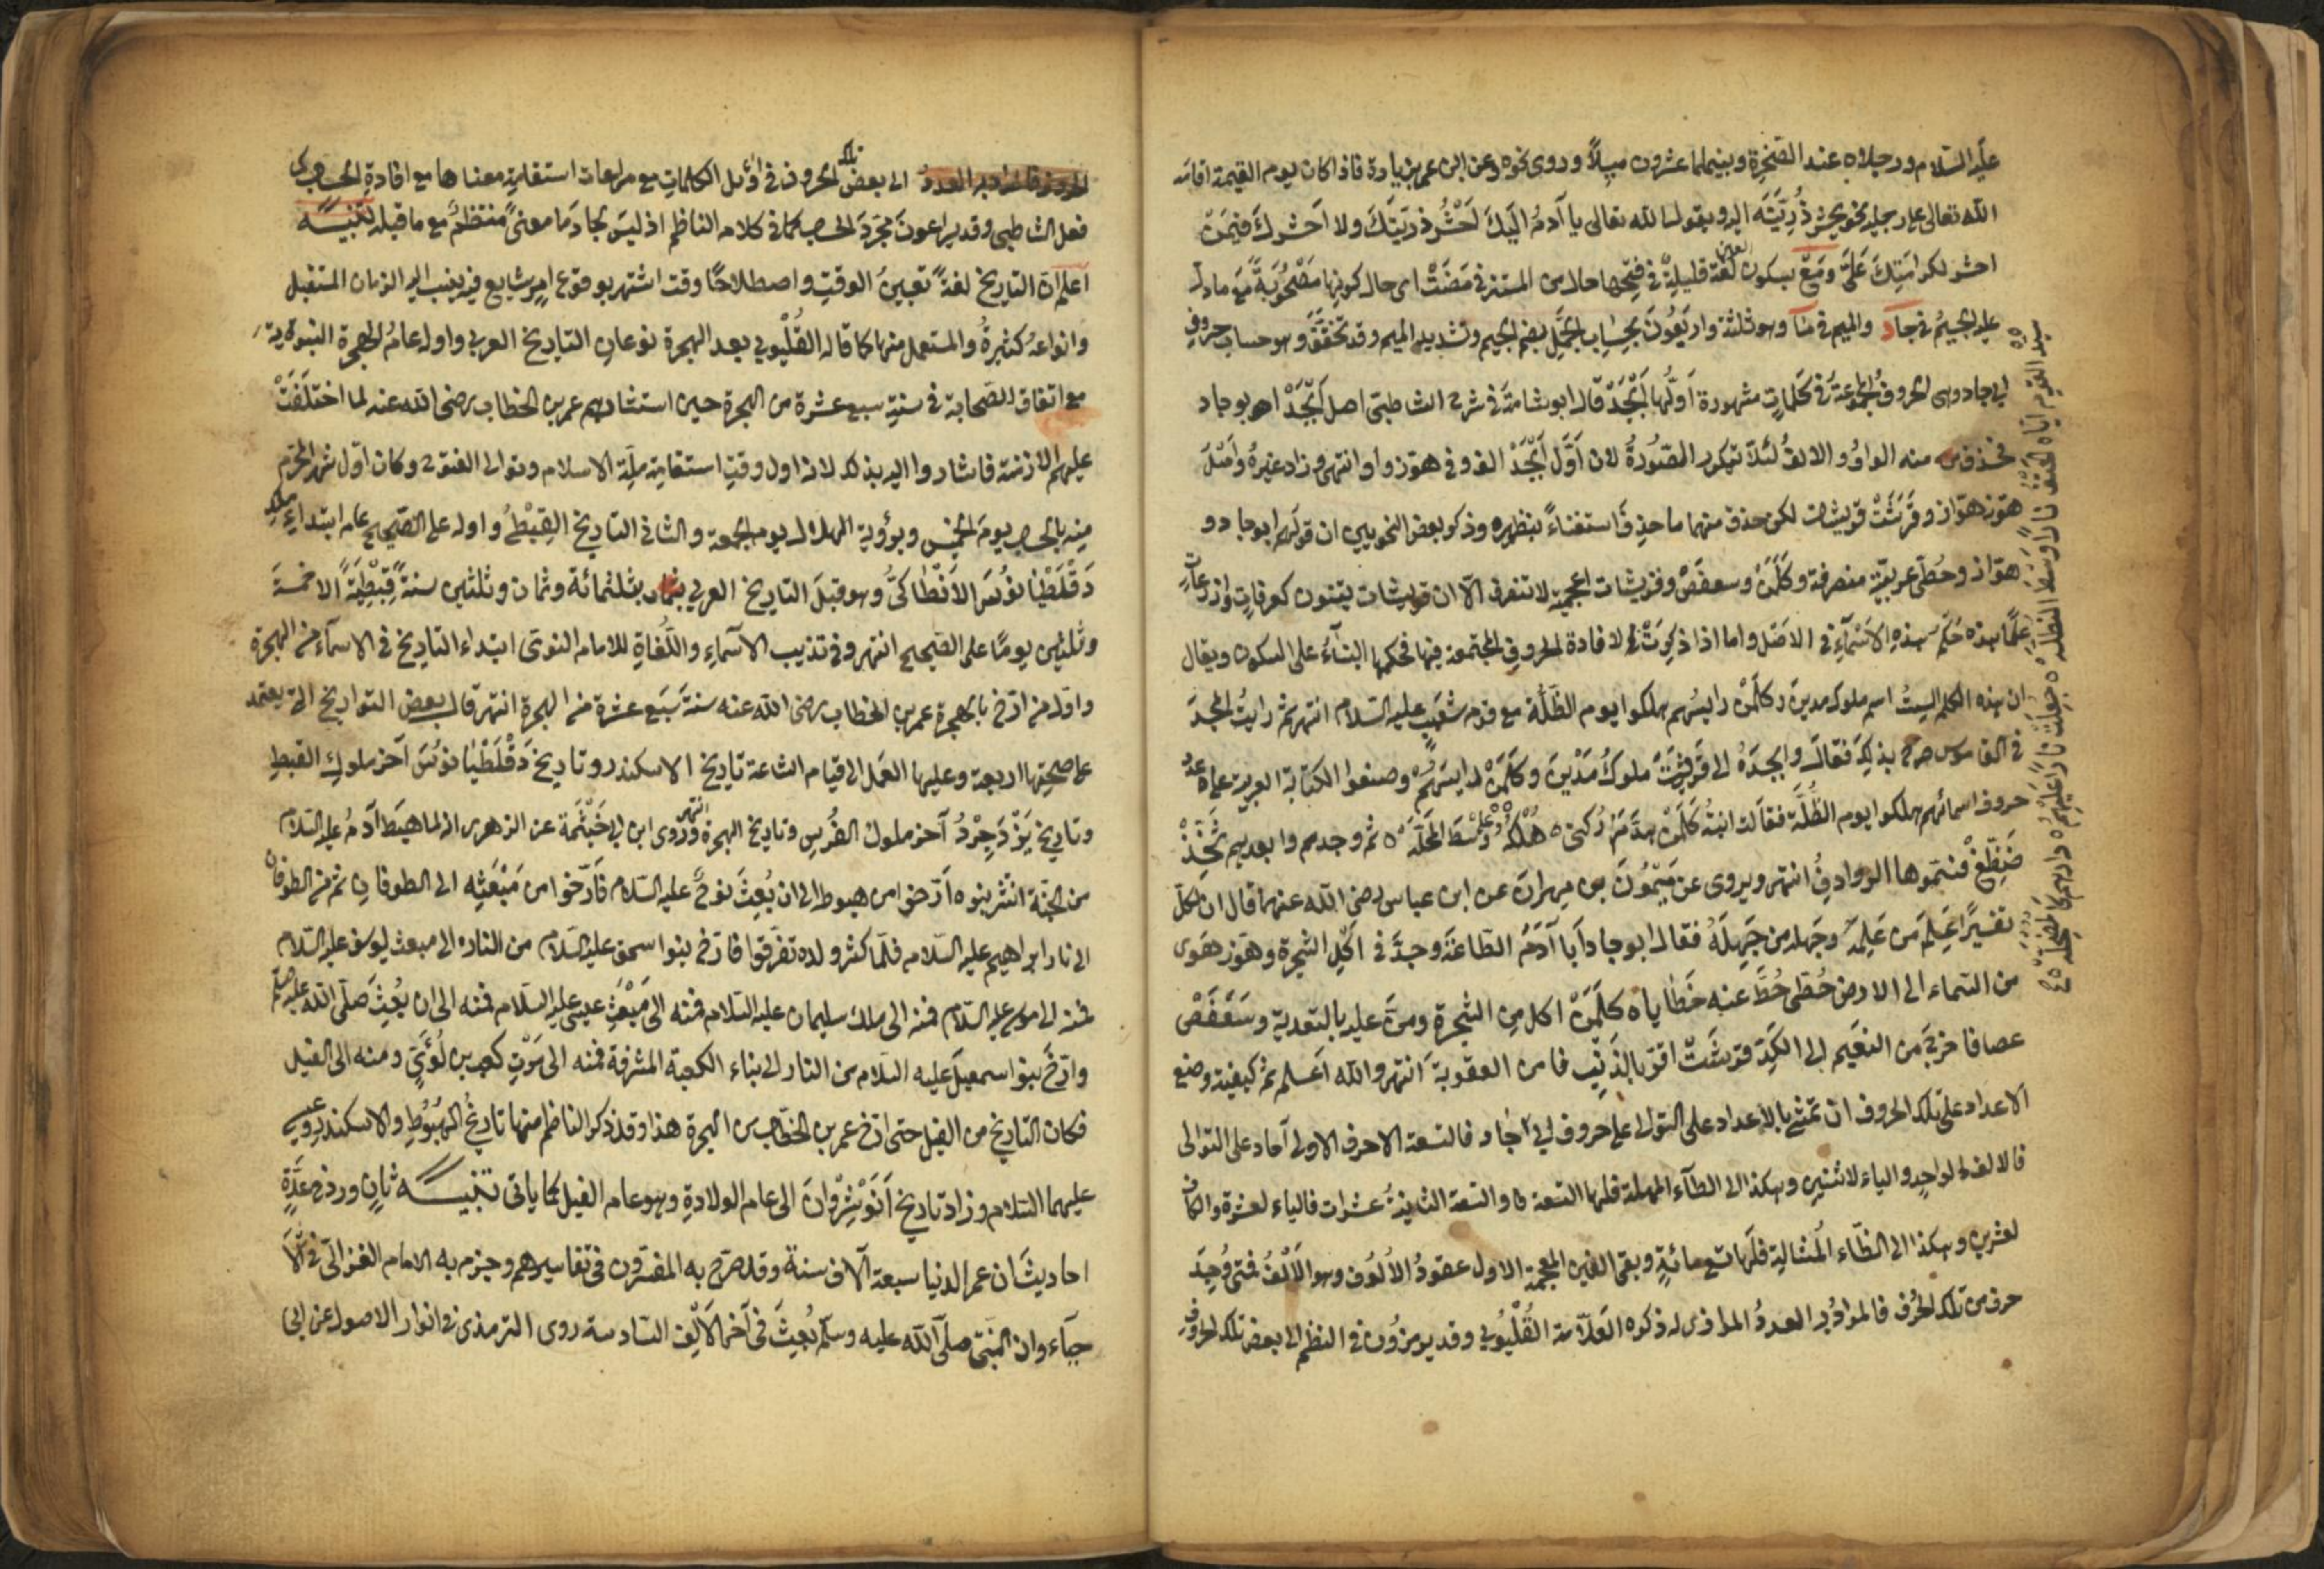 عليه السلام ورجلاه عند الصخرة وبينهما عشرون ميلاً وروى نحوه عن ابن عمر بزيادة فاذا كان يوم القيمة اقامه
الله تعالى على رجليه نحو يحشر ذُرِّيَّتَه اليه ويقول الله تعالى يا آدمُ اليك اَحْشُر ذريتك ولا احشرك فيمن
احشر لكرامتك عَلَىَّ ومَعْ بسكون العين لغة قليلة في فتحها حال من المستتر في مَضَتْ اى حال كونها مَصْحُوبَةً مَعَ ما دل
عليه الجيمُ في جاد والميم في منا وهو ثلثة واربعُونَ بحساب الجُمَّل بضم الجيم وتشديد الميم وقد تخفَّف وهو حساب حروف
ابي جاد وهى الحروفُ المجموعة في كلماتٍ مشهورة اَوَّلُها اَبْجَدْ قال ابو شامة في شرح الشاطبى اصل اَبْجَدْ ابو جاد
فحذف منه الواوُ والالفُ لئلا تتكرر الصُّورَةُ لان اَوَّلَ اَبْجَدْ الف وفي هوز واو انتهى وزاد غيرهُ واصْلُ
هوز هوّاز وقَرَشَتْ قريشات لكن حذف منهما ما حذِف استغناءً بنظيره وذكر بعض النحويين ان قولهم ابو جاد و
هوّاز وحُطّى عربية منصرفة وكَلَمَنْ وسعفَصْ وقريشات اعجمية لا تنصرف الّا ان قريشات ينون كعرفاتٍ واذرعاتٍ
علمًا بهذه حكم هذه الاَسْماءِ في الاصل واما اذا ذكِرَتْ لافادة الحروف المجتمعة فيها فحكمها البناءُ على السكون ويقال
ان هذه الكلم الستُ اسم ملوك مدين وكلمن رايسُهم هلكوا يوم الظُّلَّة مع قوم شعيب عليه السلام انتهى ثم رايتُ المجد
في القاموس صرح بذلك فقال وابجدُ الى قَرَشَتْ ملوكُ مَدْيَن وكَلَمَنْ رايسهُم وصنعوا الكتابة العربية على عدد
حروف اسمائهم هلكوا يوم الظُّلَّة فقالت ابنةُ كَلَمَنْ هدَّمَ رُكنى ٥ هُلْكُهُ وَسْطَ المَحلَّه ٥ ثم وجدهم وا بعدهم ثَخَذْ
ضَظَغْ فسَمّوها الروادِفُ انتهى ويروى عن مَيْمُونَ بن مِهرانَ عن ابن عباس رضى الله عنهما قال ان لكل
تفسيرًا عَلِمَ من عَلِمَهُ وجهله من جَهِلَهُ فقال ابو جاد اَبا آدَمُ الطاعَةَ وجدَّ في اَكْلِ الشجرة وهوز هَوى
من السّماء الى الارض حُطّى حُطَّ عنه خَطاياه كلَمَنْ اكل مِن الشجرة ومَنَّ عليه بالتوبة وسَعْفَصْ
عصا فاخرِجَ مِن النعيم الى الكَدِّ قرشَتْ اقرّ بالذنب فامن العقوبة انتهى والله اعلم ثم كيفية وضع
الاعداد على تلك الحروف ان تمشى بالاعداد على التوالى على حروف ابي جاد فالتسعة الاحرف الاولى آحاد على التوالى
فالالف لواحدٍ والباء لاثنين وهكذا الى الطآء المهملة فلها التسعة والتسعة الثانيةُ عشرات فالياء لعشرة والكاف
لعشرين وهكذا الى الظاء المُشالة فلها تسع مائةٍ وبقى الغين المعجمة الاول عقودُ الاُلُوف وهو الْاَلْفُ فمتى وُجِدَ
حرف من تلك الحرُف فالمرادُ به العددُ الموازى له ذكره العلّامة القُلْيُوبي وقد يرمزون في النظم الى بعض تلك الحروف
سيد القوم اتاه الحتف نارا وسط الظله ٥ جعلت نارا عليهم ٥ دارهم كالمضمحله
الحروف فالمراد به العددُ الى بعض تلك الحروف في اوائل الكلمات مع مراعات استقامة معناها مع افادة الحساب كما
فعل الشاطبى وقد يراعون مجرّدَ الحساب كما في كلام الناظم اذ ليسَ لجاد ما معنًى منتظمٌ مع ما قبله تنبيه
اعلم ان التاريخ لغةً تعيين الوقتِ واصطلاحًا وقت اشتهر بوقوع امرٍ شايع فيه ينسب اليه الزمان المستقبل
وانواعهُ كثيرةٌ والمستعمل منها كما قاله القُلْيوبي بعد الهجرة نوعان التاريخ العربي واوله عامُ الهجرة النبوية
مع اتفاق الصحابة في سنةِ سبع عشرة من الهجرة حين استشارهم عمر بن الخطاب رضى الله عنه لما اختلَفَتْ
عليهم الازمنة فاشاروا اليه بذلك لانه اول وقتِ استقامة ملّةِ الاسلام وتوالى الفتوح وكان اَوّل شهر المحرّم
مِنه بالحساب يومَ الخميس وبرؤية الهلال يوم الجمعة والثانى التاريخ القِبْطىُّ واوله على الصّحيح عام ابتداءِ ملك
دَقْلَطْيا نوُس الاَنْطاكىُّ وهو قبلَ التاريخ العربي بثلثمائة وثمان وثلثين سنةً قِبْطِيّةً الا خمسة
وثلثين يومًا على الصّحيح انتهى وفي تهذيب الاَسْماءِ واللُّغاةِ للامام النووى ابتداء التاريخ في الاسلام من الهجرة
واول من ارّخ بالهجرة عمر بن الخطاب رضى الله عنه سنةَ سَبْع عشرة من الهجرة انتهى قال بعض التواريخ التى يعتمد
على صحتها اربعة وعليها العمل الى قيام الساعة تاريخ الاسكندر وتاريخ دَقْلَطْيا نوُسَ آخر ملوك القبطِ
وتاريخ يَزْدَجِرْدُ آخر ملوك الفُرسِ وتاريخ الهجرة انتهى وروى ابن ابي خَيْثَمَة عن الزهرى انه لما هبَط آدمُ عليه السّلام
من الجنّة انتشر بنوه ارّخوا من هبوطه الى ان بُعِثَ نوحٌ عليه السلام فارّخوا من مَبْعَثِه الى الطوفان ثم من الطوفان
الى نار ابراهيم عليه السّلام فلمّا كثر ولده تفرّقوا فارّخ بنوا اسحق عليه السلام من النار الى مبعث يوسف عليه السّلام
فمنه الى موسى عليه السّلام فمنه الى ملك سليمان عليه السّلام فمنه الى مَبْعَثِ عيسى عليه السّلام فمنه الى ان بُعِثَ صلّى الله عليه وسلم
وارّخَ بنوا اسمعيلَ عليه السّلام من النار الى بناء الكعبة المشرفة فمنه الى مَوْتِ كعب بن لُؤَىّ ومنه الى الفيل
فكان التاريخ من الفيل حتى ارّخ عمر بن الخطّاب من الهجرة هذا وقد ذكر الناظم منها تاريخُ الهُبُوطِ والاسكندر وعيسى
عليهما السّلام وزاد تاريخ اَنَوْشِرْوانَ الى عام الولادةِ وهو عام الفيل كما ياتى تنبيه ثانٍ ورد في عدّةِ
احاديث ان عمر الدنيا سبعة آلاف سنة وقد صرّح به المفسّرون في تفاسيرهم وجزم به الامام الغزالى في
جآء وان النبىّ صلّى الله عليه وسلّم بُعِثَ في آخر الاَلْفِ السّادسة روى الترمذى في انوار الاصول عن ابي